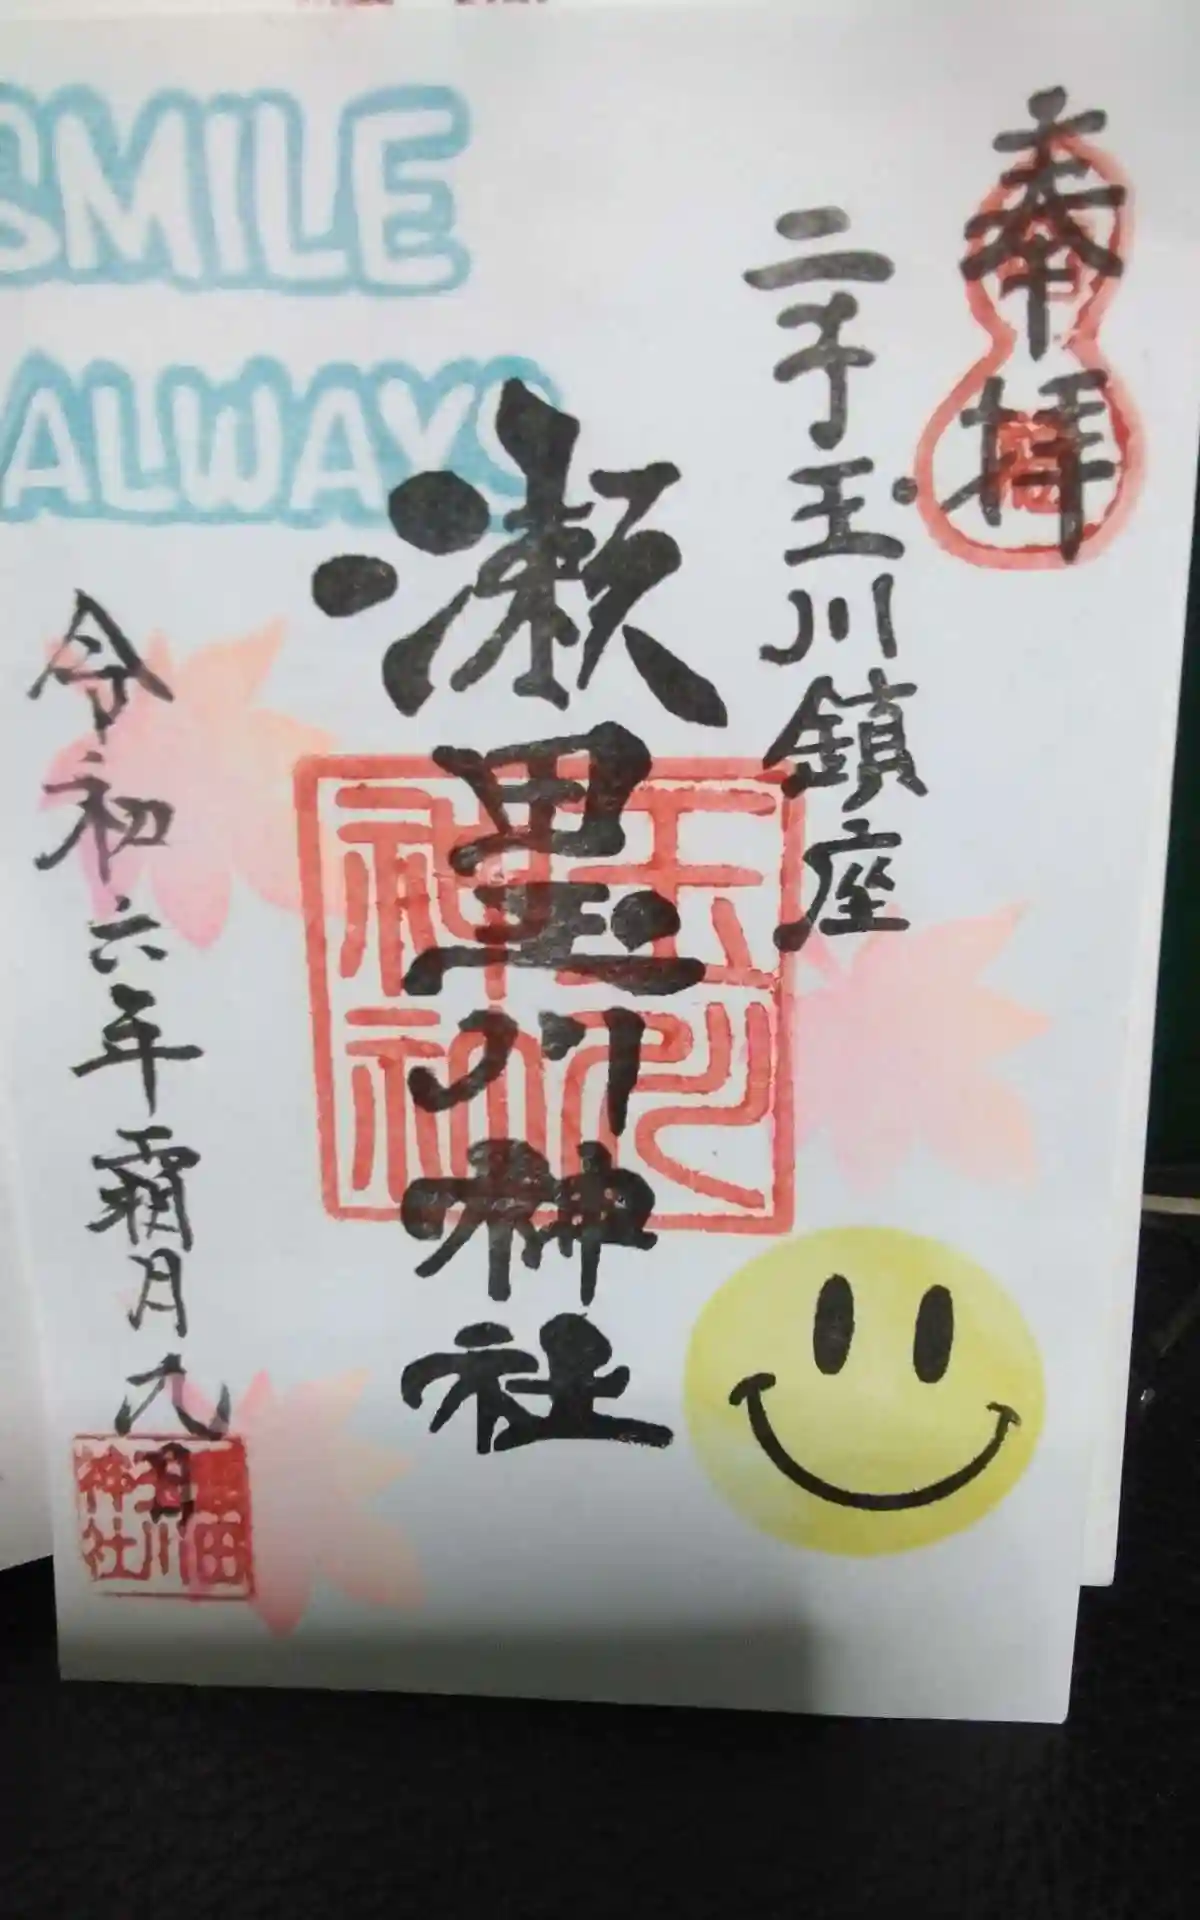 奉拝
二子玉川鎮座
瀬田玉川神社
玉川
神社
SMILE
ALWAYS
令和六年霜月九日
瀬田
玉川
神社